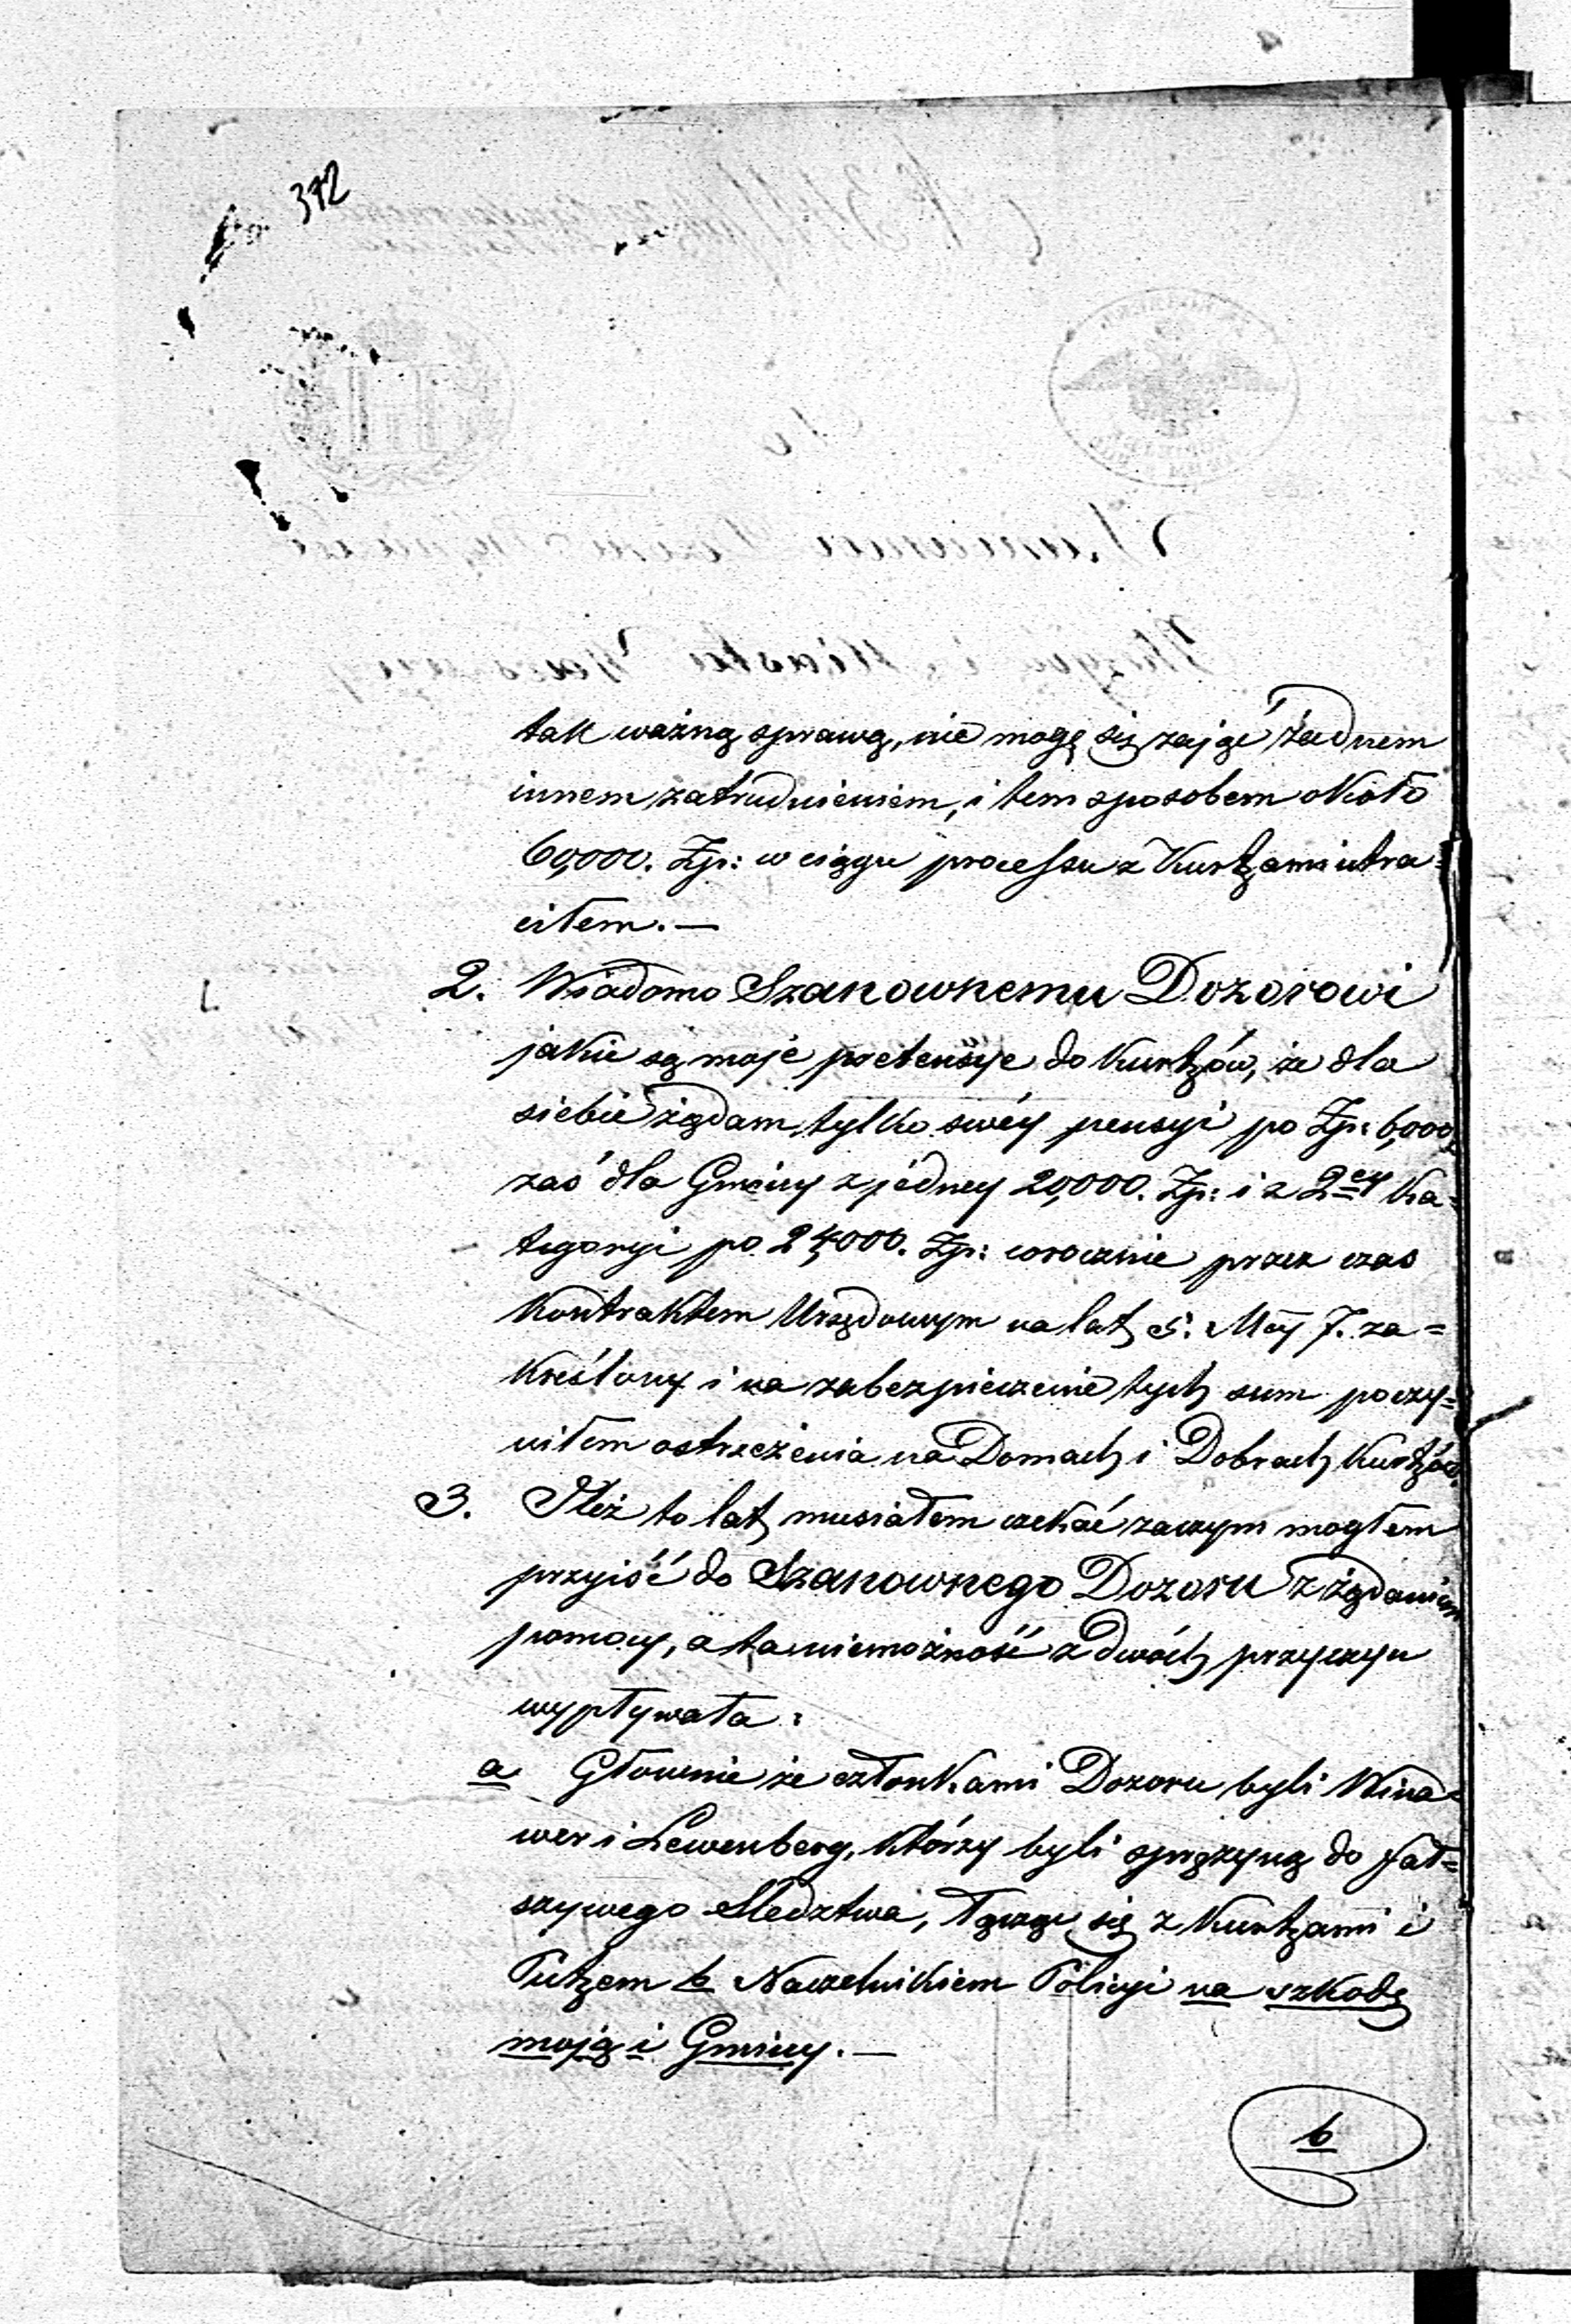 372
tak ważną sprawą, nie mogę się zająć żadnem
innem zatrudnieniem, i tem sposobem około
60,000. Zp: w ciągu processu z Kurtzami utra=
ciłem.—
2. Wiadomo Szanownemu Dozorowi
jakie są moje pretensye do Kurtzów, że dla
siebie żądam tylko swéy pensyi po Zp: 6,000
zaś dla Gminy z jédney 20,000. Zp: i z 2ey Ka=
tegoryi po 24,000. Zp: corocznie przez czas
Kontraktem Urzędowym na lat 5. M 7. za=
kreślony i na zabezpieczenie tych sum poczy=
niłem ostrzeżenia na Domach i Dobrach Kurtzów
3. Ileż to lat musiałem czekać zaczym mogłem
przyiść do Szanownego Dozoru z żądaniem
pomocy, a ta niemożność z dwóch przyczyn
wypływała:
a Głównie że członkami Dozoru byli Wina=
wer i Lewenberg, którzy byli sprężyną do fał=
szywego Śledztwa, łącząc się z Kurtzami i
Putzem b Naczelnikiem Policyi na szkodę
moją i Gminy.—
b